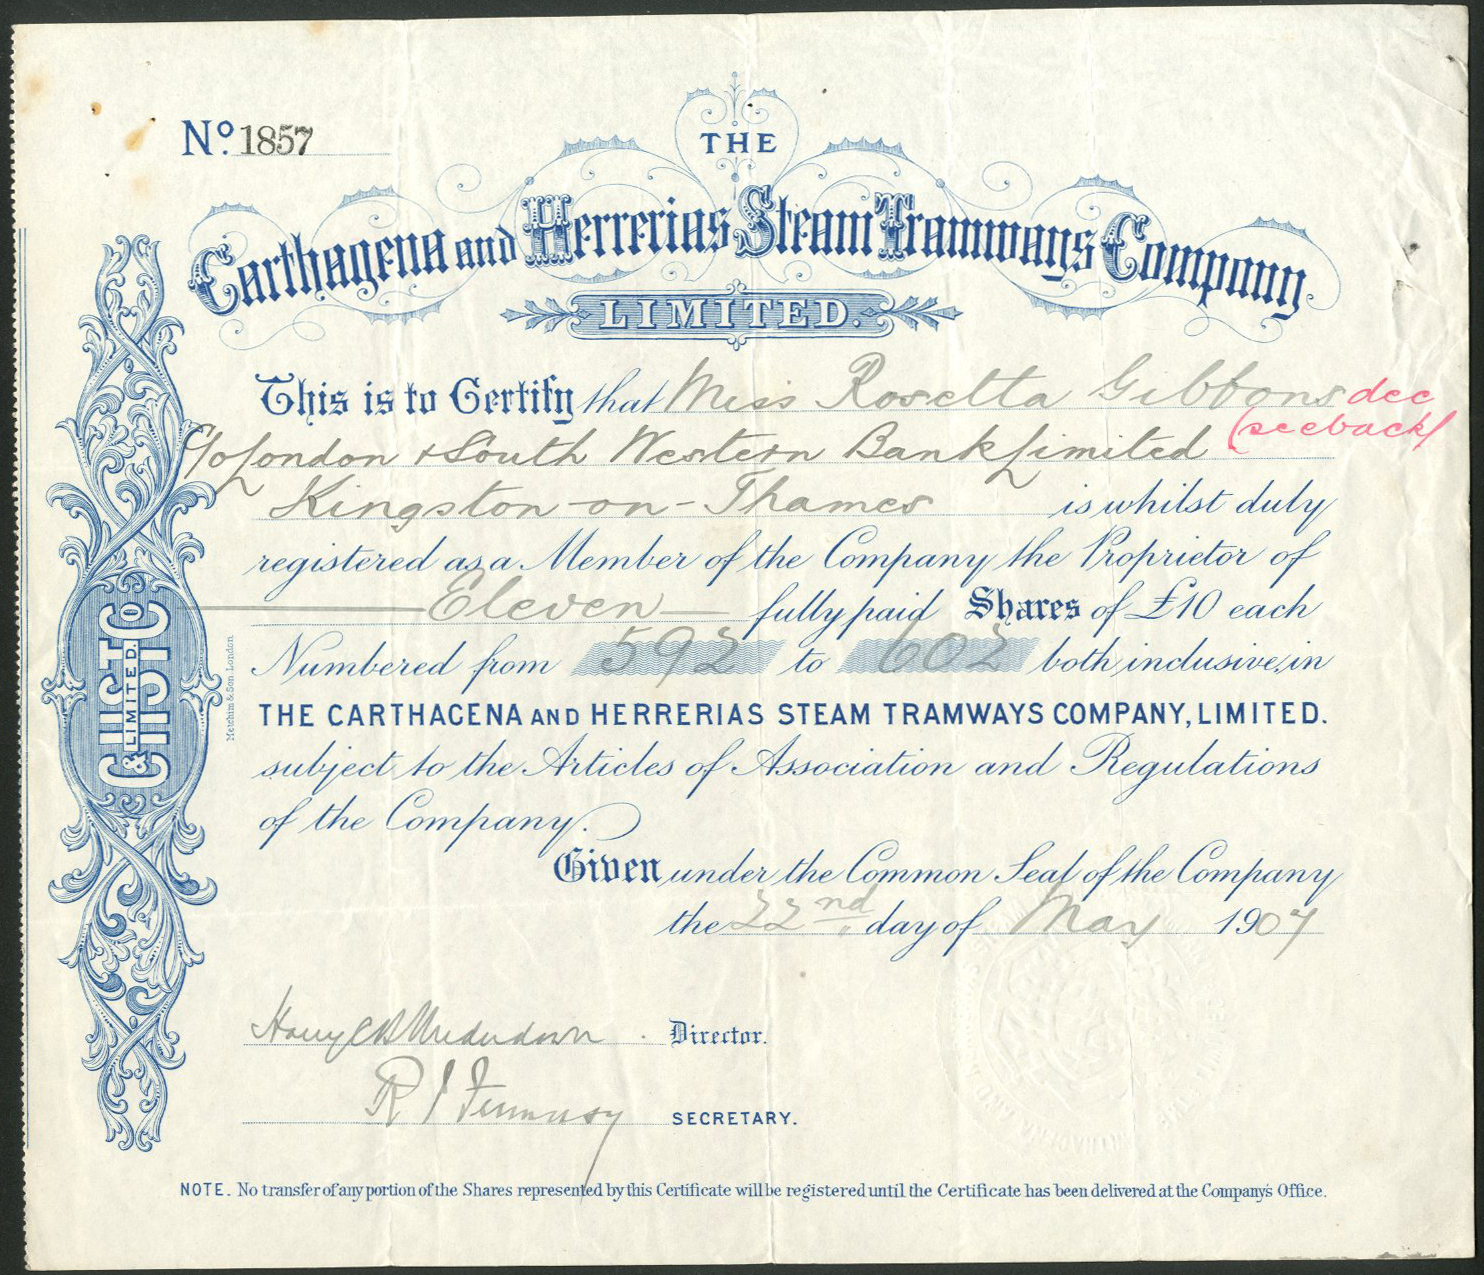 No. 1857
THE
Carthagena and Herrerias Steam Tramways Company
LIMITED.
This is to Certify that Miss Rosetta Gibbons dec
C/o London & South Western Bank Limited (see back)
Kingston-on-Thames is whilst duly
registered as a Member of the Company the Proprietor of
Eleven fully paid Shares of £10 each
Numbered from 592 to 602 both inclusive, in
THE CARTHAGENA AND HERRERIAS STEAM TRAMWAYS COMPANY, LIMITED.
subject to the Articles of Association and Regulations
of the Company.
Given under the Common Seal of the Company
the 22nd day of May 1907
Director.
SECRETARY.
NOTE. No transfer of any portion of the Shares represented by this Certificate will be registered until the Certificate has been delivered at the Company's Office.
C H S T Co
& LIMITED.
Metchim & Son London.